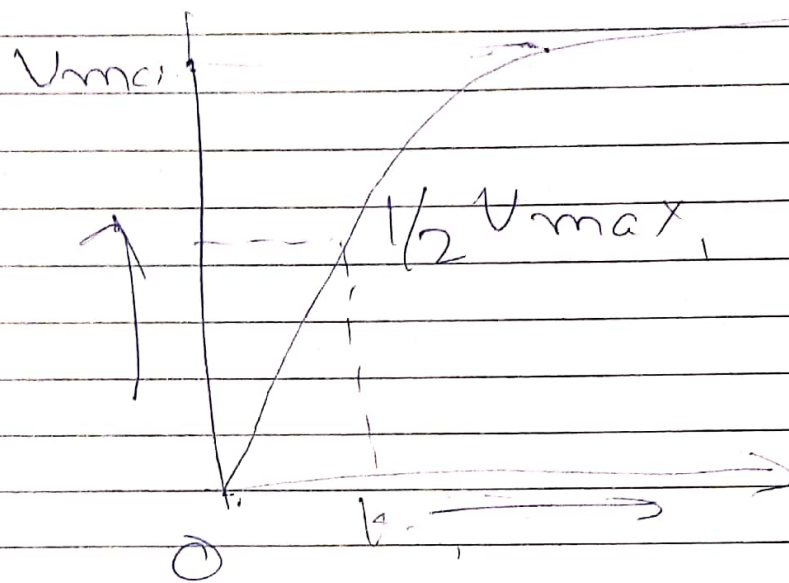 Vma
1/2 Vmax
0